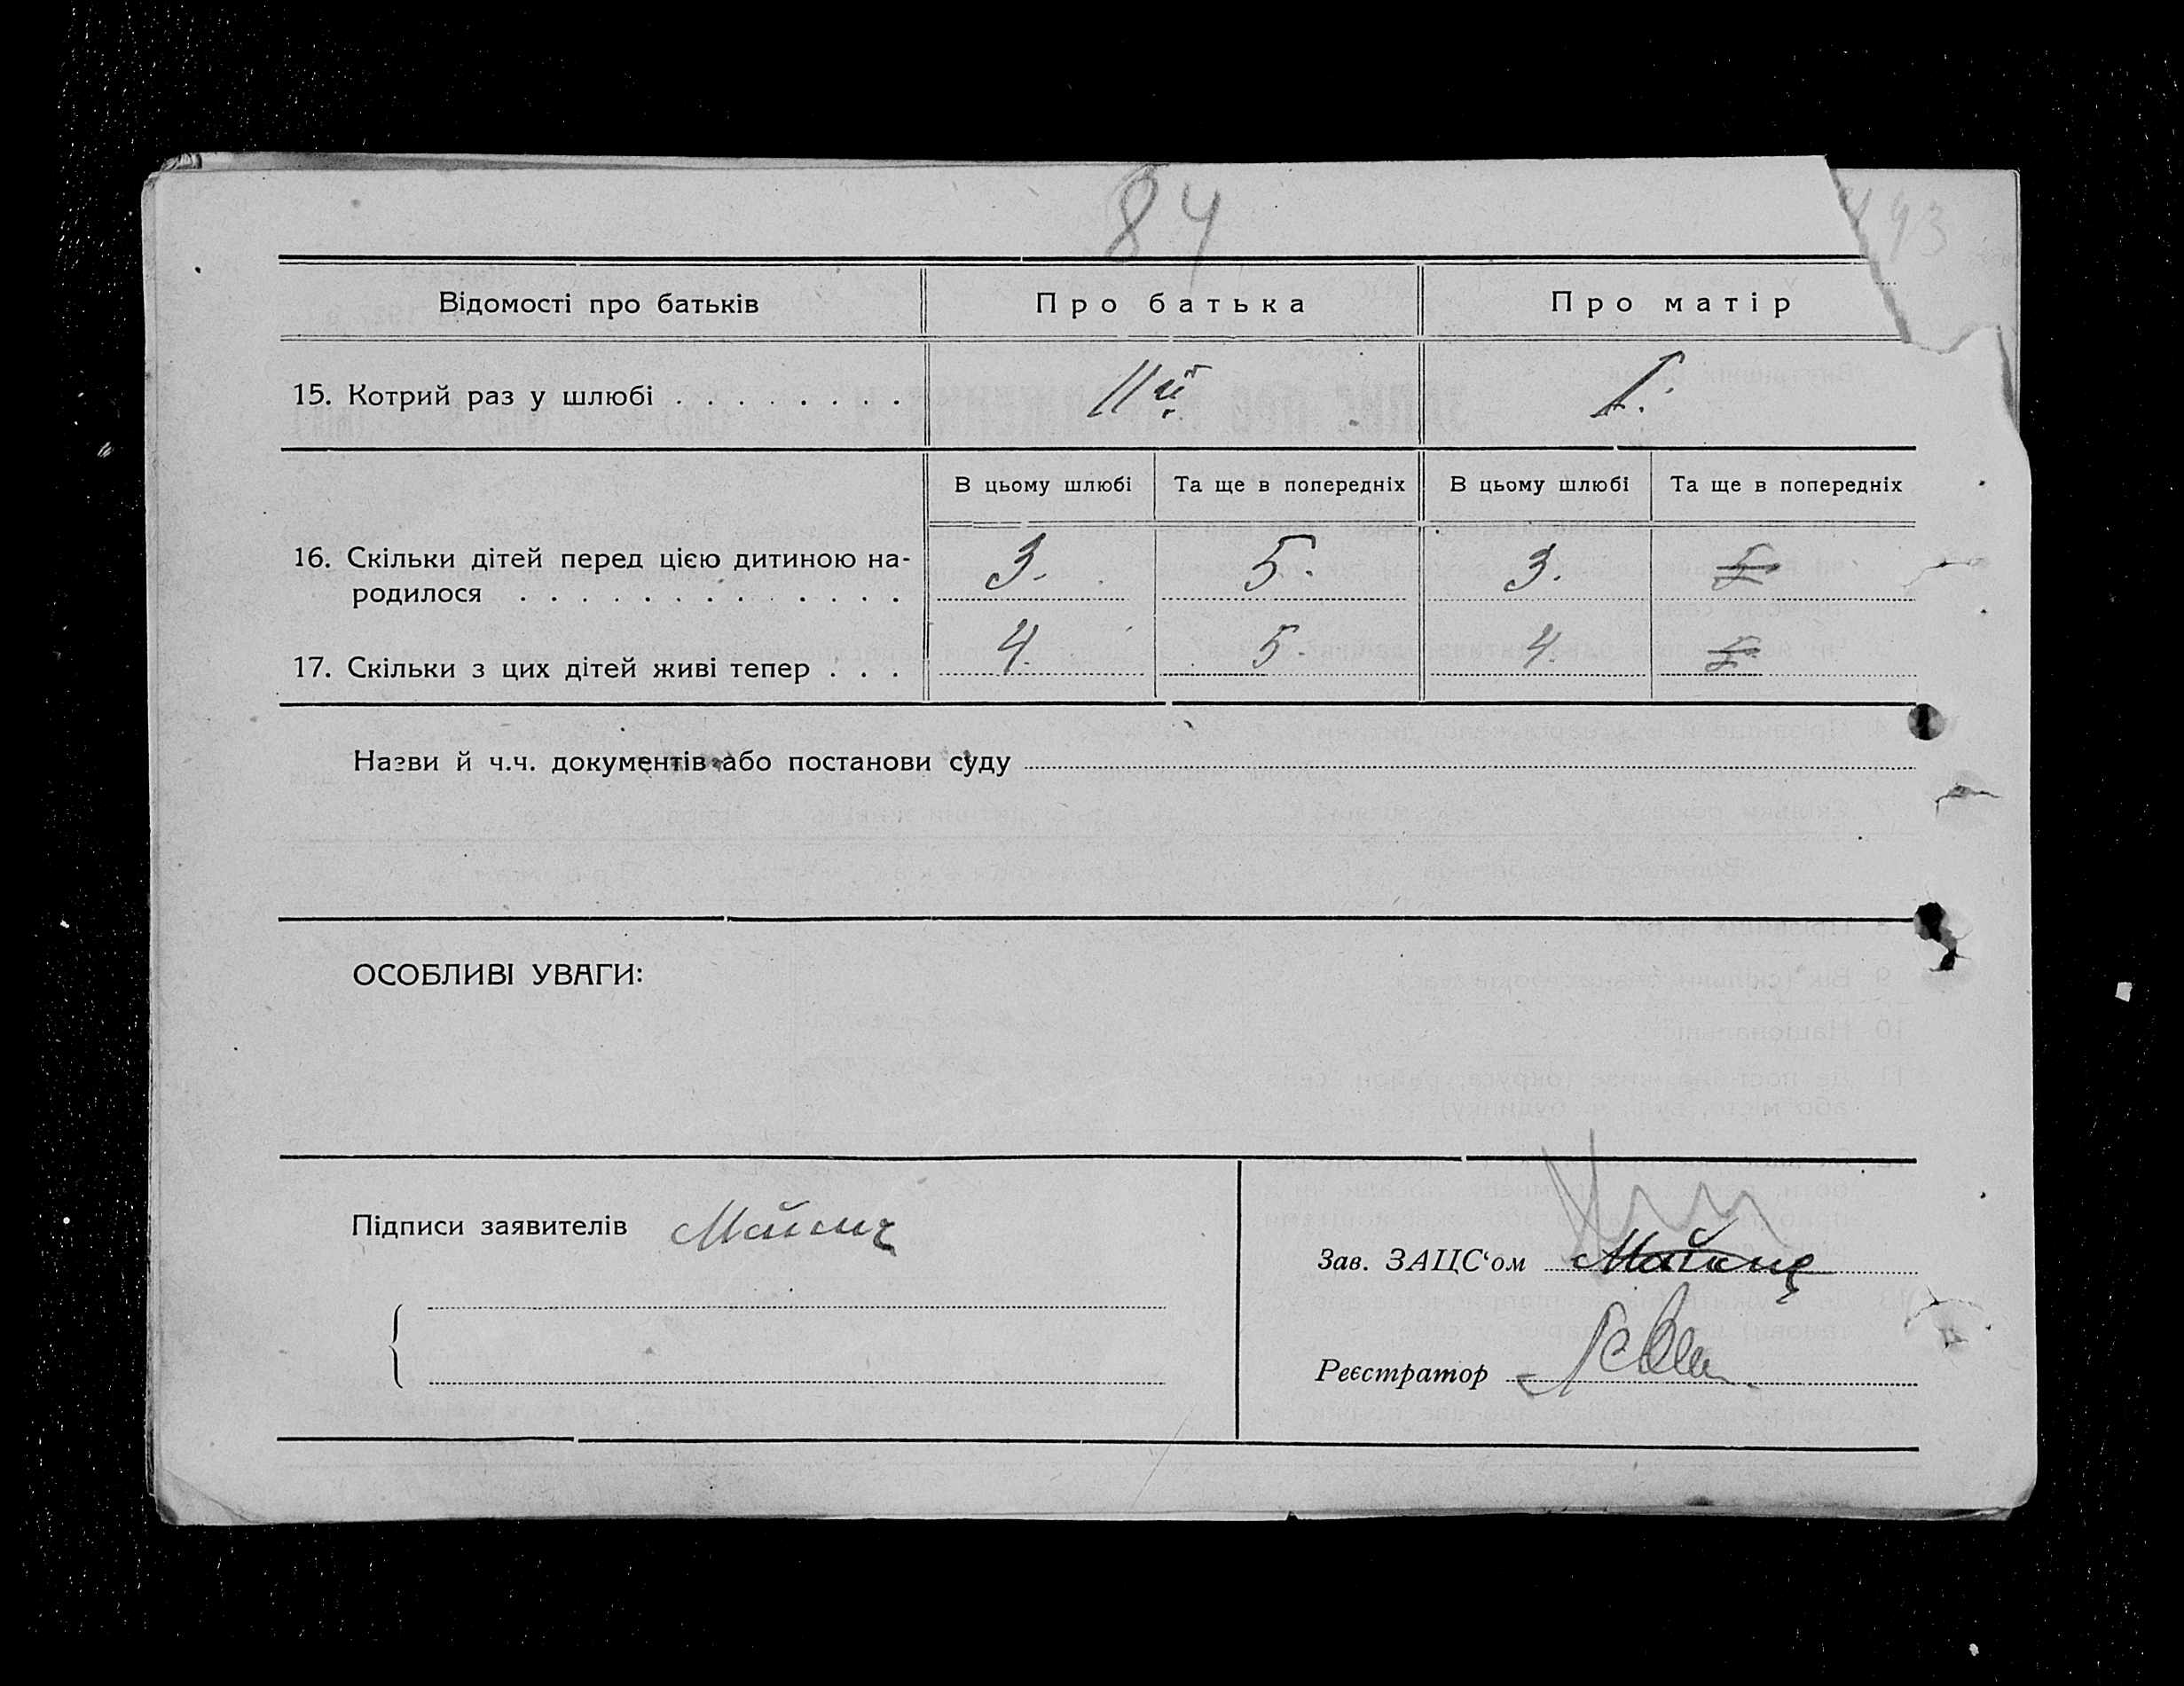 84
93
Відомості про батьків Про батька Про матір
15. Котрий раз у шлюбі . . . . . . . . IIй І.
В цьому шлюбі Та ще в попередніх В цьому шлюбі Та ще в попередніх
16. Скільки дітей перед цією дитиною на- 3. 5. 3. 5
родилося . . . . . . . . . . . . .
17. Скільки з цих дітей живі тепер . . . 4. 5. 4. 5.
Назви й ч.ч. документів або постанови суду
ОСОБЛИВІ УВАГИ:
Підписи заявителів
Зав. ЗАЦС‘ом
Реєстратор